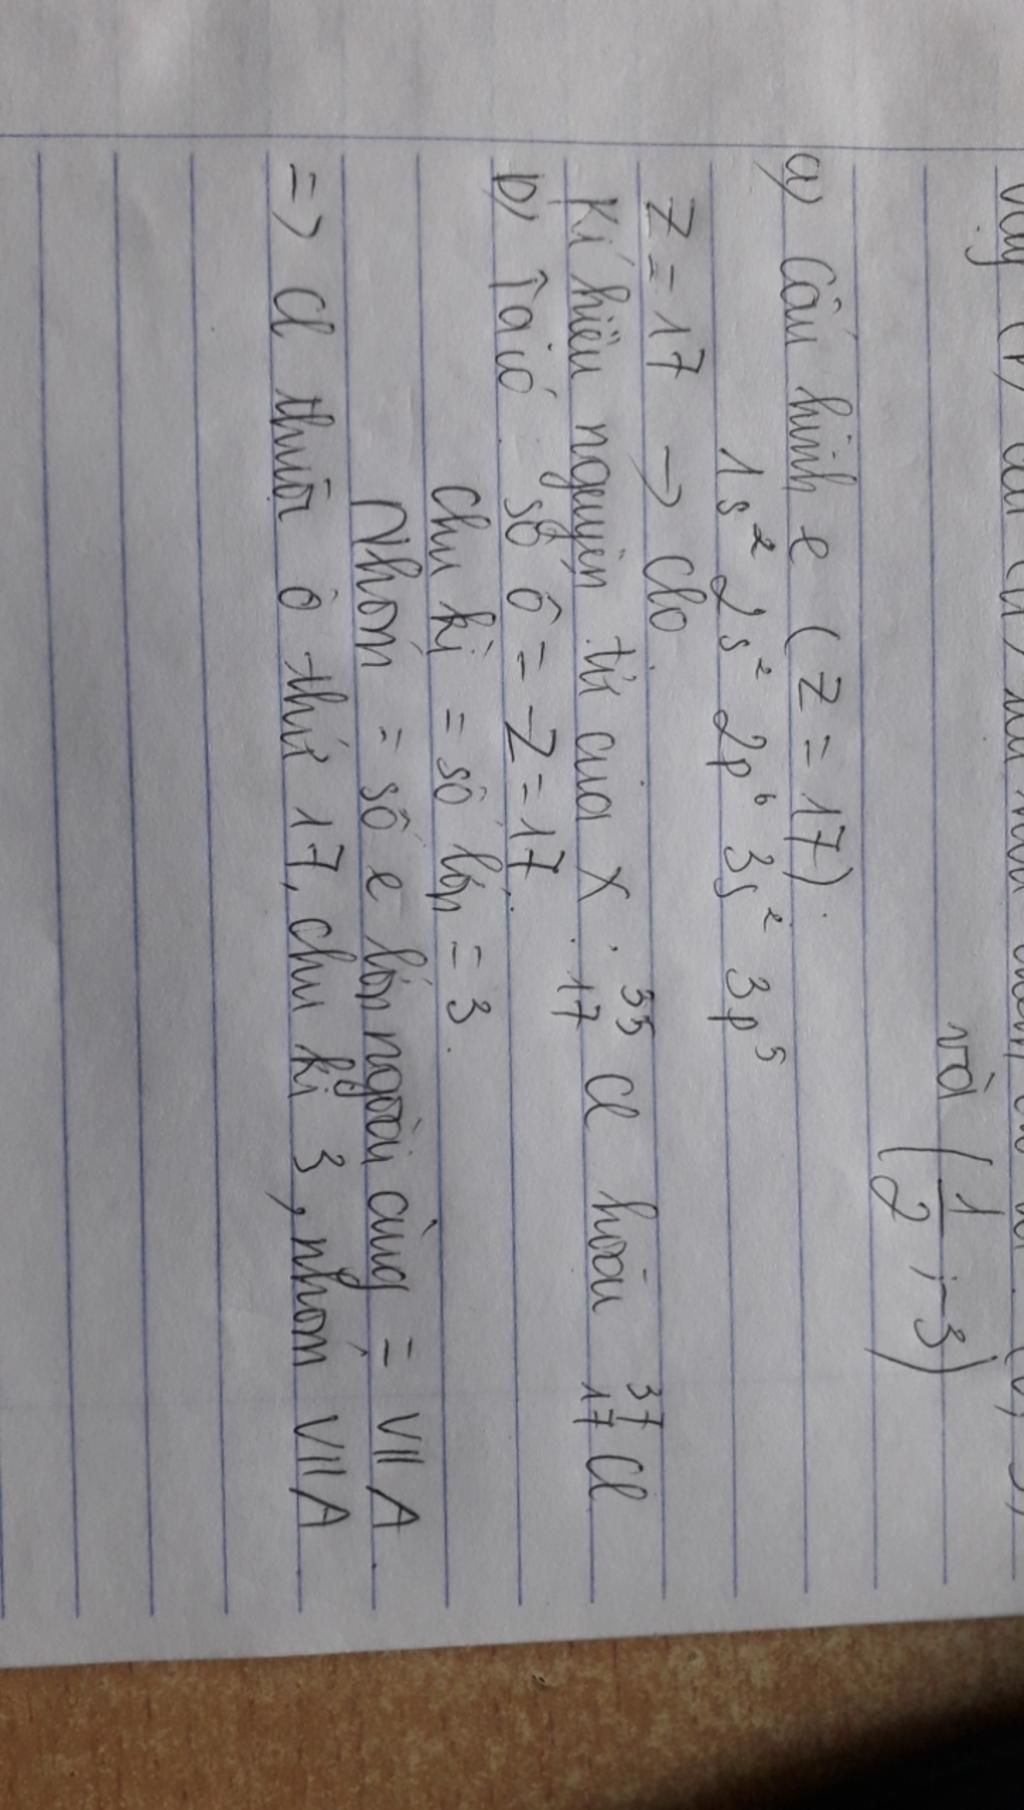 và (1/2; -3)
a) Cấu hình e (Z = 17):
1s² 2s² 2p⁶ 3s² 3p⁵
Z = 17 → Clo.
Kí hiệu nguyên tử của X: ³⁵₁₇Cl hoặc ³⁷₁₇Cl
b) Ta có số ô = Z = 17.
Chu kì = số lớp = 3.
Nhóm = số e lớp ngoài cùng = VIIA.
=> Cl thuộc ô thứ 17, chu kì 3, nhóm VIIA